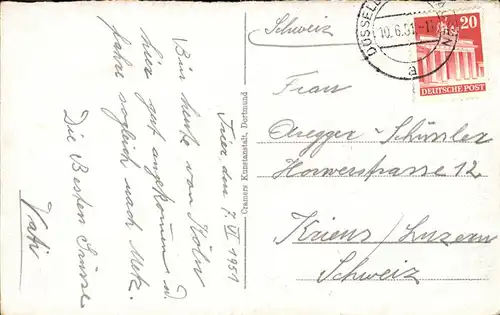 Trier, den 7. VI 1951
Bin heute von Köln
hier gut angekommen u.
fahre sogleich nach Metz.
Die Besten Grüsse
Vati
Cramers Kunstanstalt, Dortmund
Schweiz
10.6.51.-1
a
20
DEUTSCHE POST
Frau
Aregger-Schüssler
Horwerstrasse 12
Kriens/Luzern
Schweiz